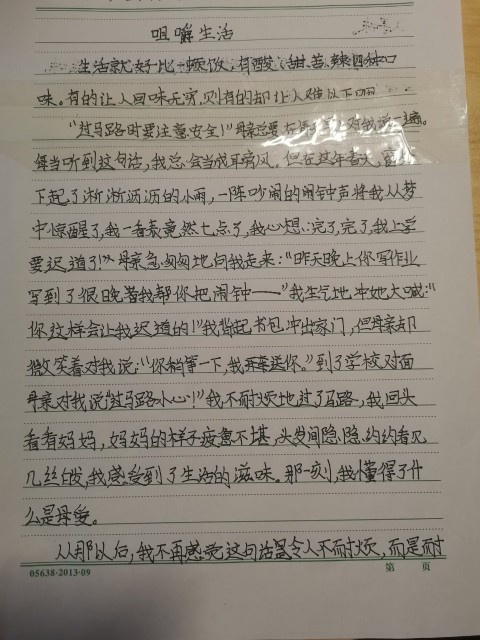 咀嚼生活
生活就好比一顿饭,有酸、甜、苦、辣四种口
味。有的让人回味无穷,则有的却让人难以下咽。
"过马路时要注意安全!"母亲总要在早上对我说一遍。
每当听到这句话,我总会当成耳旁风。但在这年春天,窗外
下起了淅淅沥沥的小雨,一阵吵闹的闹钟声将我从梦
中惊醒了,我一看表竟然七点了,我心想:完了,完了,我上学
要迟道了!"母亲急匆匆地向我走来:"昨天晚上你写作业
写到了很晚着我帮你把闹钟——"我生气地冲她大喊:"
你这样会让我迟道的!"我背起书包冲出家门,但母亲却
微笑着对我说:"你稍等一下,我开车送你。"到了学校对面
母亲对我说"过马路小心!"我不耐烦地过了马路,我回头
看看妈妈,妈妈的样子疲惫不堪,头发间隐隐约约看见
几丝白发,我感受到了生活的滋味。那一刻,我懂得了什
么是母爱。
从那以后,我不再感觉这句话是令人不耐烦,而是耐
05638·2013·09
第 页